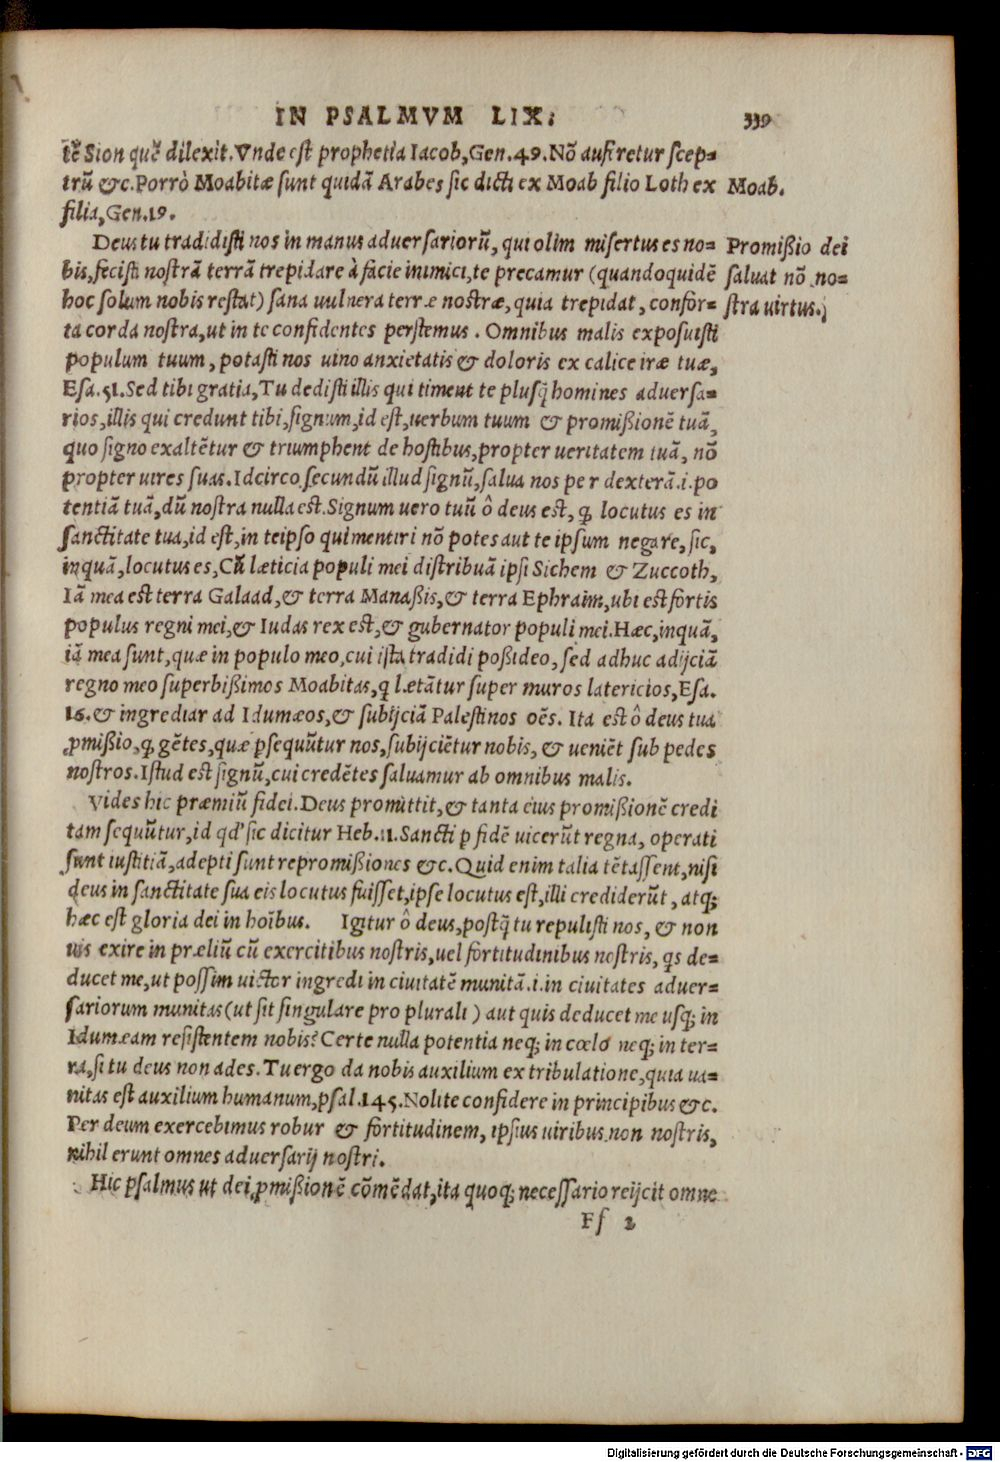 IN PSALMVM LIX.
339
tẽ Sion quẽ dilexit. Vnde est prophetia Iacob, Gen. 49. Nõ auferetur scep=
trũ &c. Porrò Moabitæ sunt quidã Arabes sic dicti ex Moab filio Loth ex
Moab.
filia, Gen. 19.
Deus tu tradidisti nos in manus aduersariorũ, qui olim misertus es no=
Promißio dei
bis, fecisti nostrã terrã trepidare à facie inimici, te precamur (quandoquidẽ
saluat nõ no=
hoc solum nobis restat) sana uulnera terræ nostræ, quia trepidat, confor=
stra uirtus.
ta corda nostra, ut in te confidentes perstemus. Omnibus malis exposuisti
populum tuum, potasti nos uino anxietatis & doloris ex calice iræ tuæ,
Esa. 51. Sed tibi gratia, Tu dedisti illis qui timent te plusq̃ homines aduersa=
rios, illis qui credunt tibi, signum, id est, uerbum tuum & promißionẽ tuã,
quo signo exaltẽtur & triumphent de hostibus, propter ueritatem tuã, nõ
propter uires suas. Idcirco secundũ illud signũ, salua nos per dexterã .i. po
tentiã tuã, dũ nostra nulla est. Signum uero tuũ ô deus est, ꝙ locutus es in
sanctitate tua, id est, in teipso qui mentiri nõ potes aut te ipsum negare, sic,
inquã, locutus es, Cũ læticia populi mei distribuã ipsi Sichem & Zuccoth,
Iã mea est terra Galaad, & terra Manaßis, & terra Ephraim, ubi est fortis
populus regni mei, & Iudas rex est, & gubernator populi mei. Hæc, inquã,
iã mea sunt, quæ in populo meo, cui ista tradidi poßideo, sed adhuc adijciã
regno meo superbißimos Moabitas, q̃ lætãtur super muros latericios, Esa.
16. & ingrediar ad Idumæos, & subijciã Palestinos oẽs. Ita est ô deus tua
ꝓmißio, ꝙ gẽtes, quæ ꝑsequũtur nos, subijciẽtur nobis, & ueniẽt sub pedes
nostros. Istud est signũ, cui credẽtes saluamur ab omnibus malis.
Vides hic præmiũ fidei. Deus promittit, & tanta eius promißionẽ credi
tam sequũtur, id qd' sic dicitur Heb. 11. Sancti ꝑ fidẽ uicerũt regna, operati
sunt iustitiã, adepti sunt repromißiones &c. Quid enim talia tẽtassent, nisi
deus in sanctitate sua eis locutus fuisset, ipse locutus est, illi crediderũt, atq;
hæc est gloria dei in hoĩbus. Igitur ô deus, postq̃ tu repulisti nos, & non
uis exire in præliũ cũ exercitibus nostris, uel fortitudinibus nostris, q̃s de=
ducet me, ut possim uictor ingredi in ciuitatẽ munitã .i. in ciuitates aduer=
sariorum munitas (ut sit singulare pro plurali) aut quis deducet me usq; in
Idumæam resistentem nobis? Certe nulla potentia neq; in cœlo neq; in ter=
ra, si tu deus non ades. Tu ergo da nobis auxilium ex tribulatione, quia ua=
nitas est auxilium humanum, psal. 145. Nolite confidere in principibus &c.
Per deum exercebimus robur & fortitudinem, ipsius uiribus non nostris,
nihil erunt omnes aduersarij nostri.
Hic psalmus ut dei ꝓmißionẽ cõmẽdat, ita quoq; necessario reijcit omne
Ff 2
Digitalisierung gefördert durch die Deutsche Forschungsgemeinschaft - DFG